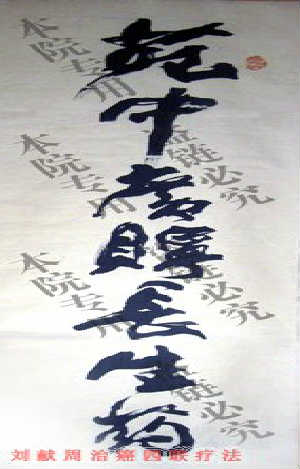 中常長生药
本院专用 盗链必究
本院专用 盗链必究
本院专用 盗链必究
刘献周治癌四联疗法